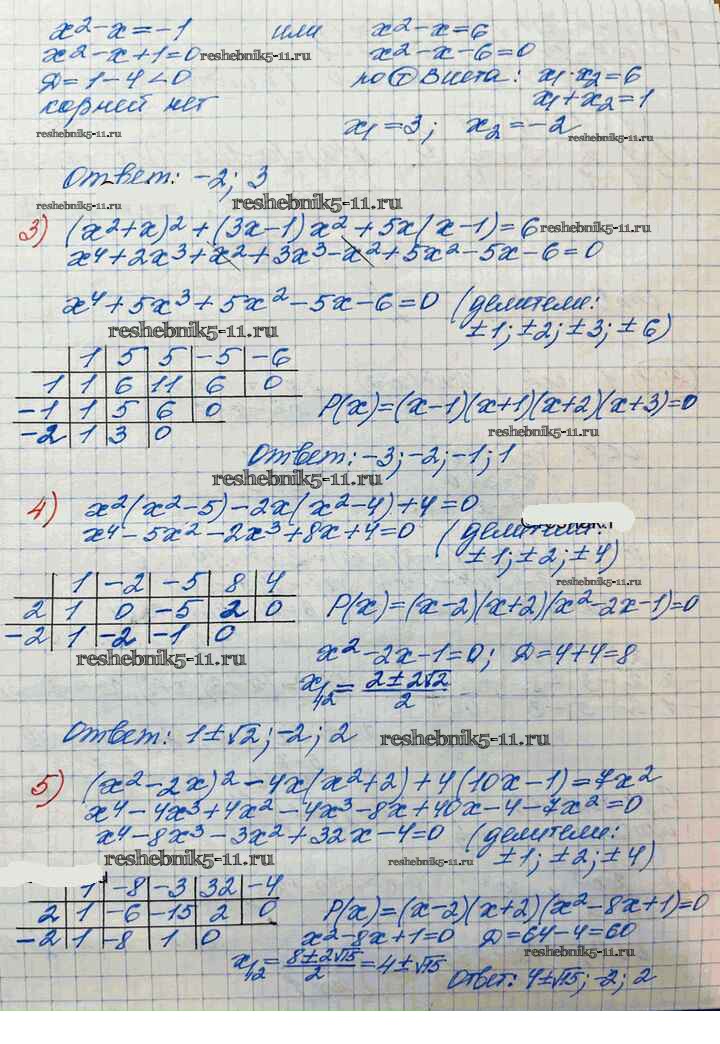 x² - x = -1 или x² - x = 6
x² - x + 1 = 0 reshebnik5-11.ru x² - x - 6 = 0
Д = 1 - 4 < 0 по Т Виета: x₁ · x₂ = 6
корней нет x₁ + x₂ = 1
reshebnik5-11.ru x₁ = 3; x₂ = -2 reshebnik5-11.ru
Ответ: -2; 3
reshebnik5-11.ru reshebnik5-11.ru
3) (x² + x)² + (3x - 1) x² + 5x(x - 1) = 6 reshebnik5-11.ru
x⁴ + 2x³ + x² + 3x³ - x² + 5x² - 5x - 6 = 0
x⁴ + 5x³ + 5x² - 5x - 6 = 0 (делители:
reshebnik5-11.ru ±1; ±2; ±3; ±6)
1 5 5 -5 -6
1 1 6 11 6 0
-1 1 5 6 0 P(x) = (x-1)(x+1)(x+2)(x+3) = 0
-2 1 3 0 reshebnik5-11.ru
Ответ: -3; -2; -1; 1
reshebnik5-11.ru
4) x²(x² - 5) - 2x(x² - 4) + 4 = 0
x⁴ - 5x² - 2x³ + 8x + 4 = 0 (делители:
±1; ±2; ±4)
reshebnik5-11.ru
1 -2 -5 8 4
2 1 0 -5 2 0 P(x) = (x-2)(x+2)(x² - 2x - 1) = 0
-2 1 -2 -1 0
reshebnik5-11.ru x² - 2x - 1 = 0; Д = 4 + 4 = 8
x₁,₂ = (2 ± 2√2)/2
Ответ: 1 ± √2; -2; 2 reshebnik5-11.ru
5) (x² - 2x)² - 4x(x² + 2) + 4(10x - 1) = 7x²
x⁴ - 4x³ + 4x² - 4x³ - 8x + 40x - 4 - 7x² = 0
x⁴ - 8x³ - 3x² + 32x - 4 = 0 (делители:
reshebnik5-11.ru reshebnik5-11.ru ±1; ±2; ±4)
1 -8 -3 32 -4
2 1 -6 -15 2 0 P(x) = (x-2)(x+2)(x² - 8x + 1) = 0
-2 1 -8 1 0 x² - 8x + 1 = 0 Д = 64 - 4 = 60
reshebnik5-11.ru
x₁,₂ = (8 ± 2√15)/2 = 4 ± √15 Ответ: 4 ± √15; -2; 2